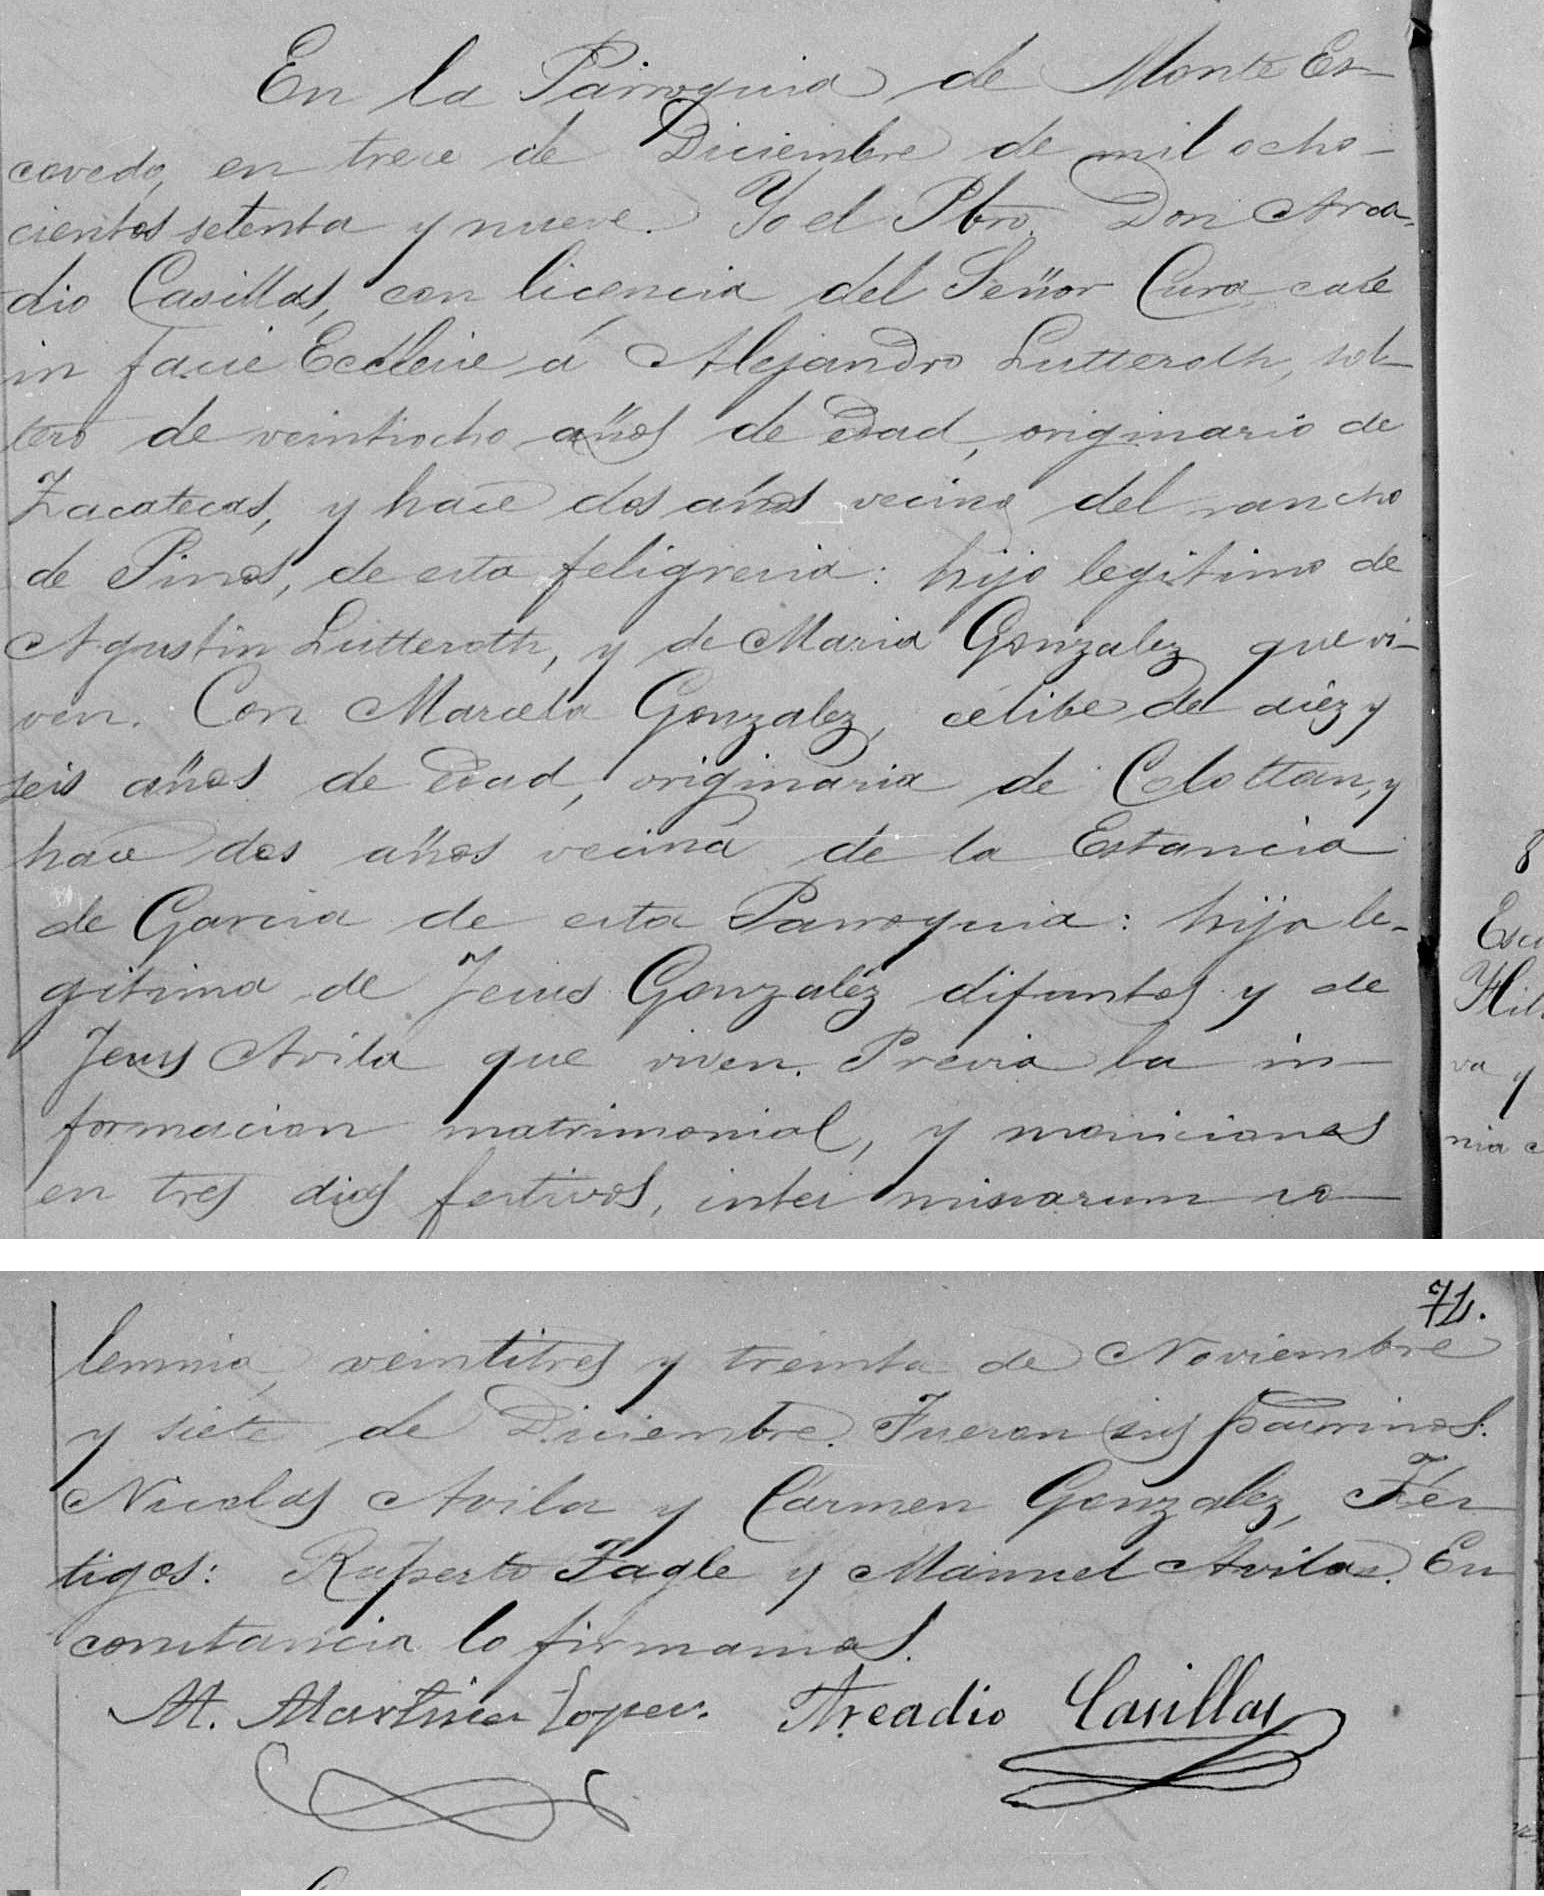 En la Parroquia de Monte Es-
covedo, en trece de Diciembre de mil ocho-
cientos setenta y nueve. Yo el Pbro. Don Arca-
dio Casillas, con licencia del Señor Cura, casé
in facie Eccleie á Alejandro Lutteroth, sol-
tero de veintiocho años de edad, originario de
Zacatecas, y hace dos años vecino del rancho
de Pinos, de esta feligresia: hijo legitimo de
Agustin Lutteroth, y de Maria Gonzalez que vi-
ven. Con Marcela Gonzalez, célibe de diez y
seis años de edad, originaria de Colottan, y
hace dos años vecina de la Estancia
de Garcia de esta Parroquia: hija le-
gitima de Jesus Gonzalez difuntos y de
Jesus Avila que viven. Previa la in-
formacion matrimonial, y moniciones
en tres dias festivos, inter missarum so-
71.
lemnia, veintitres y treinta de Noviembre
y siete de Diciembre. Fueron sus padrinos.
Nicolas Avila y Carmen Gonzalez, Tés-
tigos: Ruperto Tagle y Manuel Avila. En
constancia lo firmamos.
M. Martinez Lopez. Arcadio Casillas
8
Escu
Hil
va y
nia c